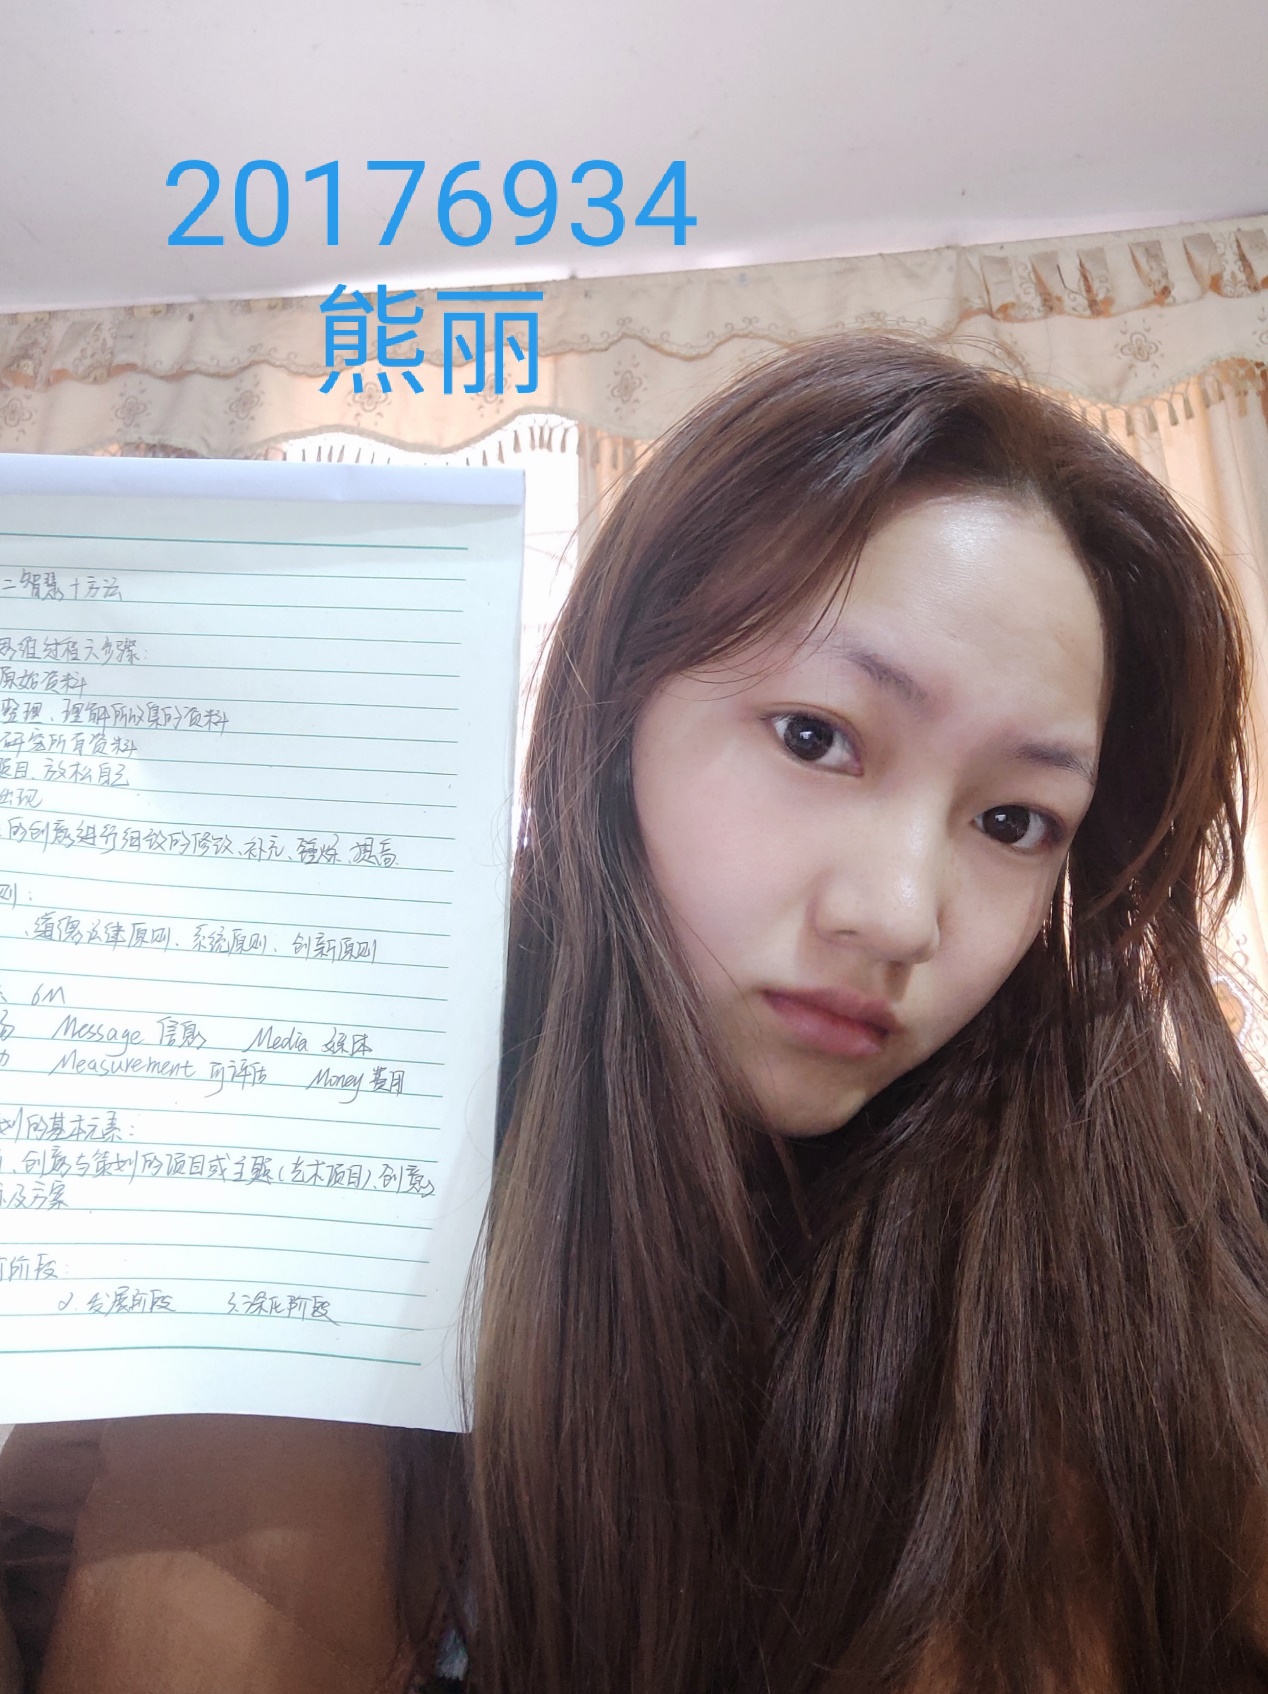 20176934
熊丽
=智慧+方法
思维过程六步骤:
原始资料
整理、理解所收集的资料
研究所有资料
项目、放松自己
出现
的创意进行细致的修改、补充、锤炼、提高
则:
、道德法律原则、系统原则、创新原则
6M
场 Message 信息 Media 媒体
Measurement 可评估 Money 费用
划的基本元素:
、创意与策划的项目或主题(艺术项目)、创意
及方案
阶段:
2.发展阶段 3.深化阶段